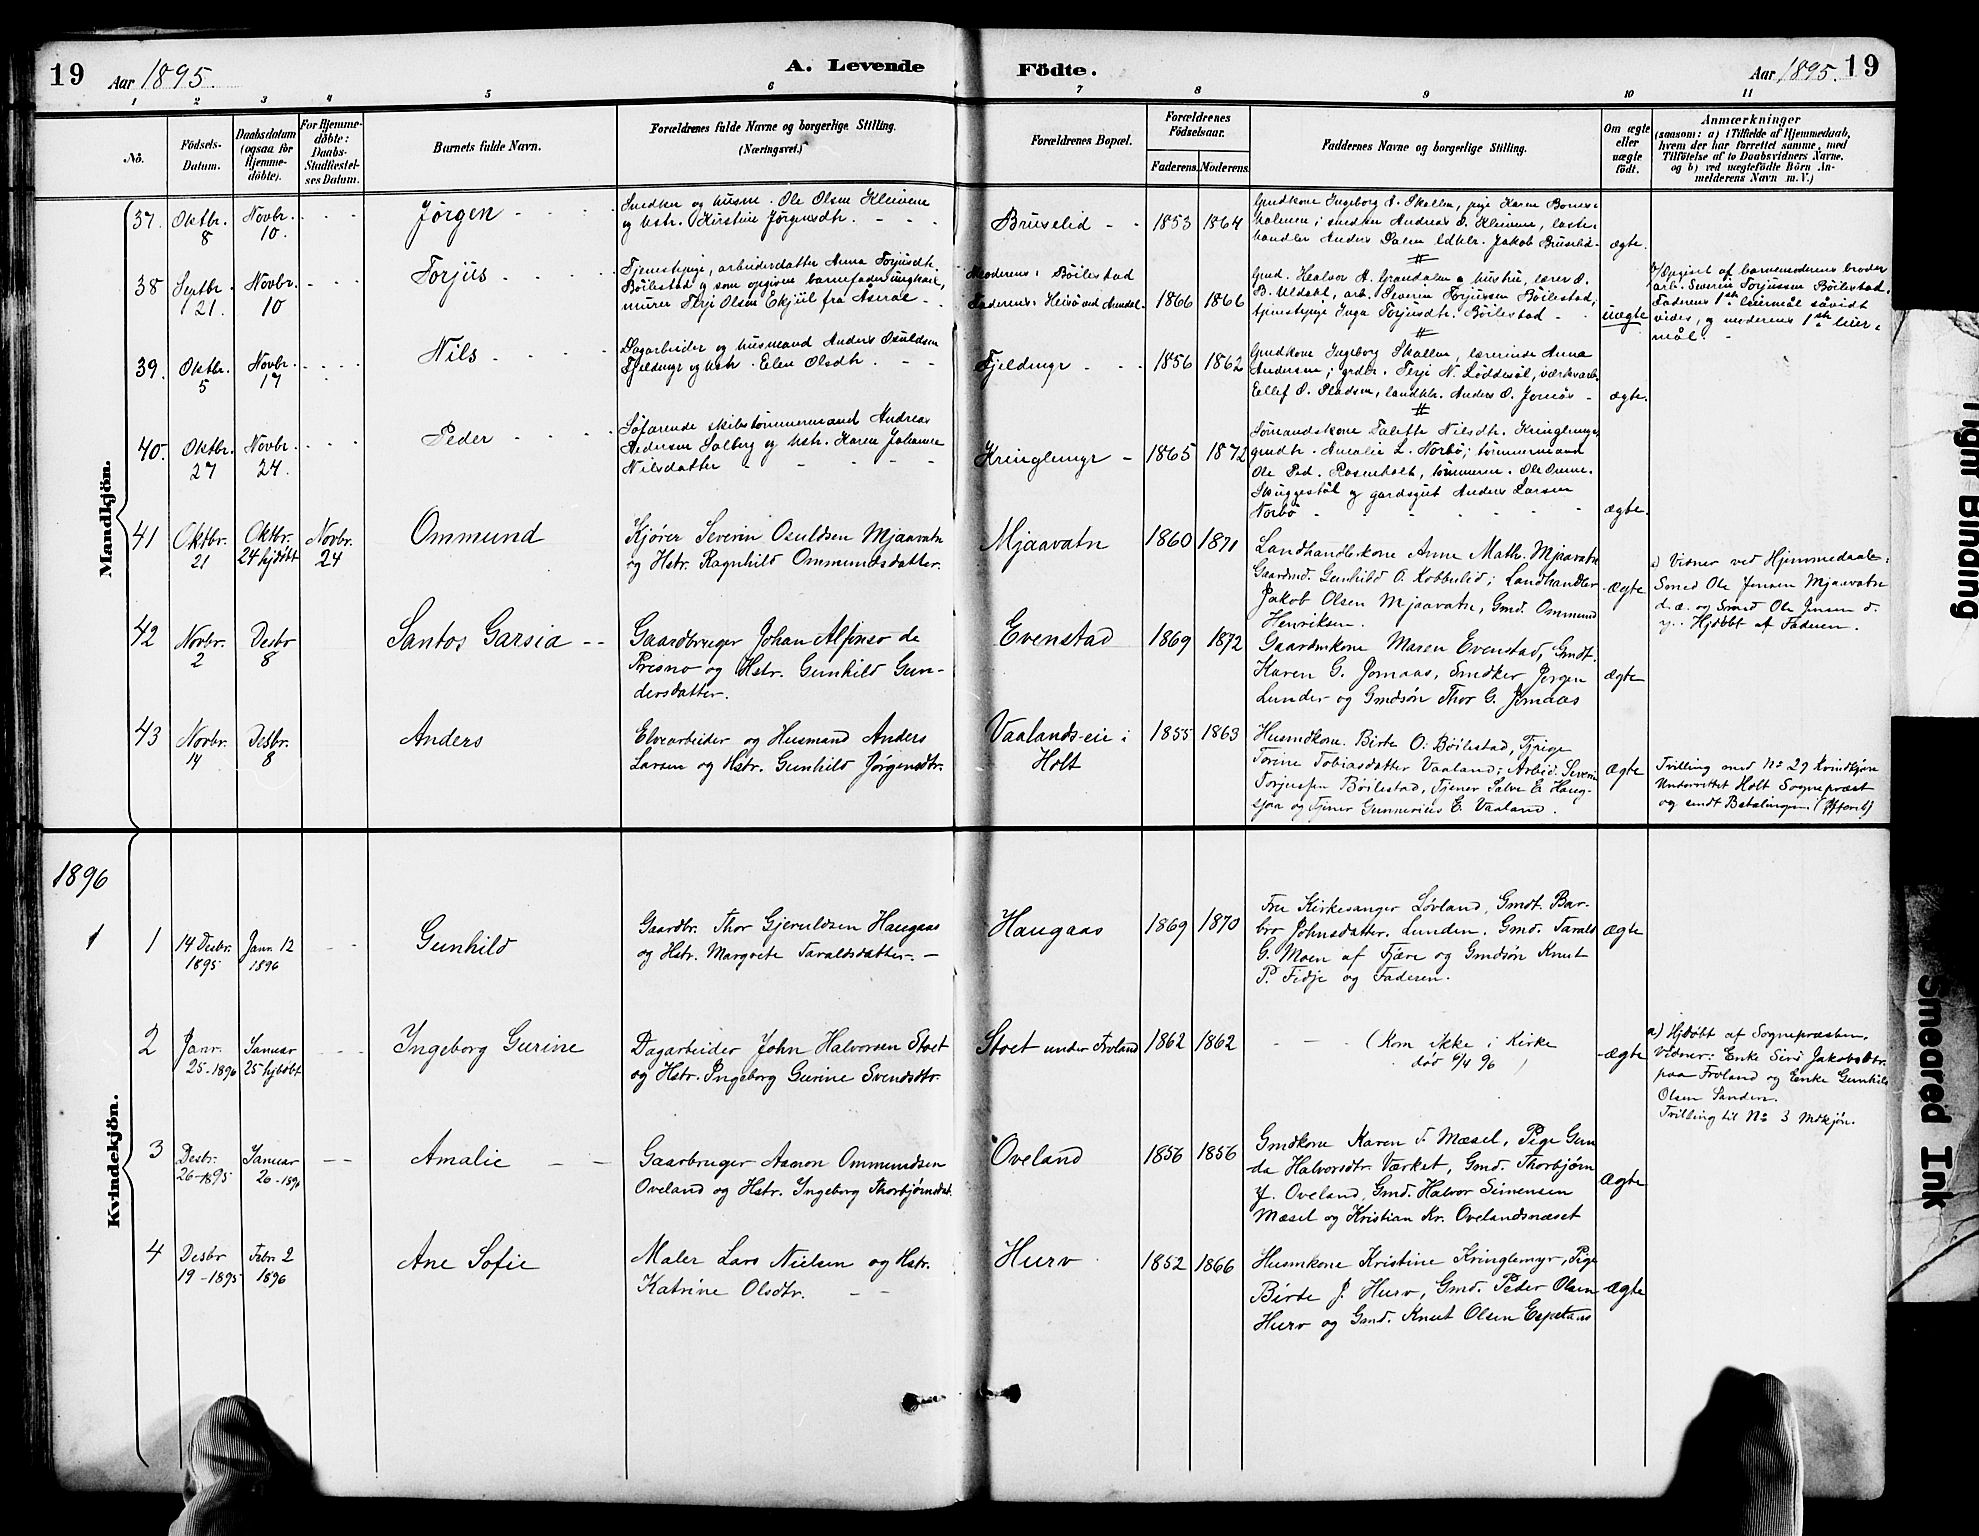 19 Aar 1895. A. Levende Födte. Aar 1895. 19
1 2 3 4 5 6 7 8 9 10 11
No.
Födsels-
Datum.
Daabsdatum
(ogsaa for
Hjemme-
döbte).
For Hjemme-
döbte:
Daabs-
Stadfæstel-
ses Datum.
Barnets fulde Navn.
Forældrenes fulde Navne og borgerlige Stilling.
(Næringsvei.)
Forældrenes Bopæl.
Forældrenes
Födselsaar.
Faderens. Moderens.
Faddernes Navne og borgerlige Stilling.
Om ægte
eller
uægte
födt.
Anmærkninger
(saasom: a) i Tilfælde af Hjemmedaab,
hvem der har forrettet samme, med
Tilföielse af to Daabsvidners Navne,
og b) ved uægtefödte Börn An-
melderens Navn m. V.)
Mandkjön.
37. Oktbr. 8 Novbr. 10.
Jørgen
Snedker og husm. Ole Olsen Kleivene
og hstr. Kirstine Jørgensdtr.
Bruselid 1853 1864
Gmdkone Ingeborg A. Skallen, pige Karen Bones-
holmen; snedker Andreas O. Kleivene, laste-
handler Anders Dalen ldhlr. Jakob Bruselid
ægte.
38 Septbr. 21. Novbr. 10
Torjus
Tjenestpige, arbeidersdatter Anna Torjusdtr.
Böilestad og som opgiven barnefader ungkarl,
murer Terje Olsen Ekjul fra Åmral
Moderens: Böilestad
Faderens: Heisö ved Arendal 1866 1866
Gmd. Healvor A. Grandalen og hustru, lærer O.
B. Uldalt, arb. Severin Torjussen Böilestad,
tjenestpige Inga Torjusdtr. Böilestad
uægte
b/ Opgivet af barnemoderens broder
arb. Severin Torjussen Böilestad.
Faderens 1ste leiermål såvidt
vides, og moderens 1ste leier-
mål.
39. Oktbr. 5 Novbr. 17
Nils
Dagarbeider og husmand Anders Osuldsen
Fjeldmyr og hstr. Elen Olsdtr.
Fjeldmyr 1856 1862
Gmdkone Ingeborg Skallen, lærerinde Anna
Andersen; grdbr. Terje N. Löddesöl, værksarb.
Ellef O. Pladsen, landhlr. Anders O. Jomås
ægte.
40. Oktbr. 27 Novbr. 24.
Peder
Söfarende skibstömmermand Andreas
Pedersen Solberg og hstr. Karen Johanne
Nilsdatter
Kringlemyr 1865 1872
Sömandskone Talette Nilsdtr. Kringlemyr
gmdtr. Amalie L. Norbö; tömmermand
Ole Ped. Rosenholt, tömmerm. Ole Omm.
Skuggestöl og gardsgut Anders Larsen
Norbö
ægte.
41 Oktbr. 21 Oktbr. 24 hjdöbt Novbr. 24
Ommund
Kjører Severin Osuldsen Mjaavatn
og Hstr. Ragnhild Ommundsdatter.
Mjaavatn 1860 1871
Landhandlerkone Anne Math. Mjaavatn
Gaardmd. Gunhild O. Kobbeslid; Landhandler
Jakob Olsen Mjaavatn, Gmd. Ommund
Henriksen.
ægte
a) Vidner ved Hjemmedaab:
Smed Ole Jensen Mjaavatn
d. æ. og Smed Ole Jensen d.
y. Hjdöbt af Faderen.
42 Novbr. 2 Desbr 8
Santos Garsia
Gaardbruger Johan Alfonso de
Presno og Hstr. Gunhild Gun-
dersdatter.
Evenstad 1869 1872
Gaardmkone Maren Evenstad, Gmdt.
Karen G. Jomaas, Snedker Jørgen
Lunder og Gmdsøn Thor G. Jomaas
ægte
43 Novbr. 14 Desbr. 8
Anders
Elvearbeider og Husmand Anders
Larsen og Hstr. Gunhild Jørgensdtr.
Vaalands-eie i
Holt 1855 1863
Husmdkone Birte O. Böilestad, Tjpige
Torine Tobiasdatter Vaaland; Arbeid. Severin
Torjussen Böilestad, Tjener Salve E. Haug-
sjaa og Tjener Gunnerius E. Vaaland.
ægte
Tvilling med No 29 Kvindkjøn
Underrettet Holt Sognepræst
og sendt Betalingen.
1896
Kvindekjön.
1 1 14 Desbr. 1895 Janr. 12 1896
Gunhild
Gaardbr. Thor Gjeruldsen Haugaas
og Hstr. Margrete Taraldsdatter.
Haugaas 1869 1870
Fru Kirkesanger Løvland, Gmdt. Bar-
bro Johnsdatter. Lunden, Gmd. Tarald
G. Moen af Fjære og Gmdsøn Knut
P. Fidje og Faderen.
ægte
2 Janr. 25-1896 Januar 25 hjdöbt
Ingeborg Gurine
Dagarbeider John Halvorsen Stoet
og Hstr. Ingeborg Gurine Svendsdtr.
Stoet under Froland 1862 1862
(Kom ikke i Kirke
død 6/4 96 )
ægte
a) Hjdöbt af Sognepræsten.
Vidner: Enke Siri Jakobsdtr.
paa Froland og Enke Gunhild
Olsen Sanden.
Tvilling til No 3 Mdkjøn.
3 Desbr. 26-1895 Januar 26-1896
Amalie
Gaarbruger Aanon Ommundsen
Oveland og Hstr. Ingeborg Thorbjørnsdat.
Oveland 1856 1856
Gmdkone Karen T. Mæsel, Pige Gun
da Halvorsdtr. Værket, Gmd. Thorbjørn
Y. Oveland, Gmd. Halvor Simensen
Mæsel og Kristian Kr. Ovelandsnæset
Ægte
4 Desbr 19-1895 Febr. 2 1896
Ane Sofie
Maler Lars Nielsen og Hstr.
Katrine Olsdtr.
Hurv 1852 1866
Husmkone Kristine Kringlemyr, Pige
Birte J. Hurv, Gmd. Peder Olsen
Hurv og Gmd. Knut Olsen Espetans
Ægte
Tight Binding
Smeared Ink